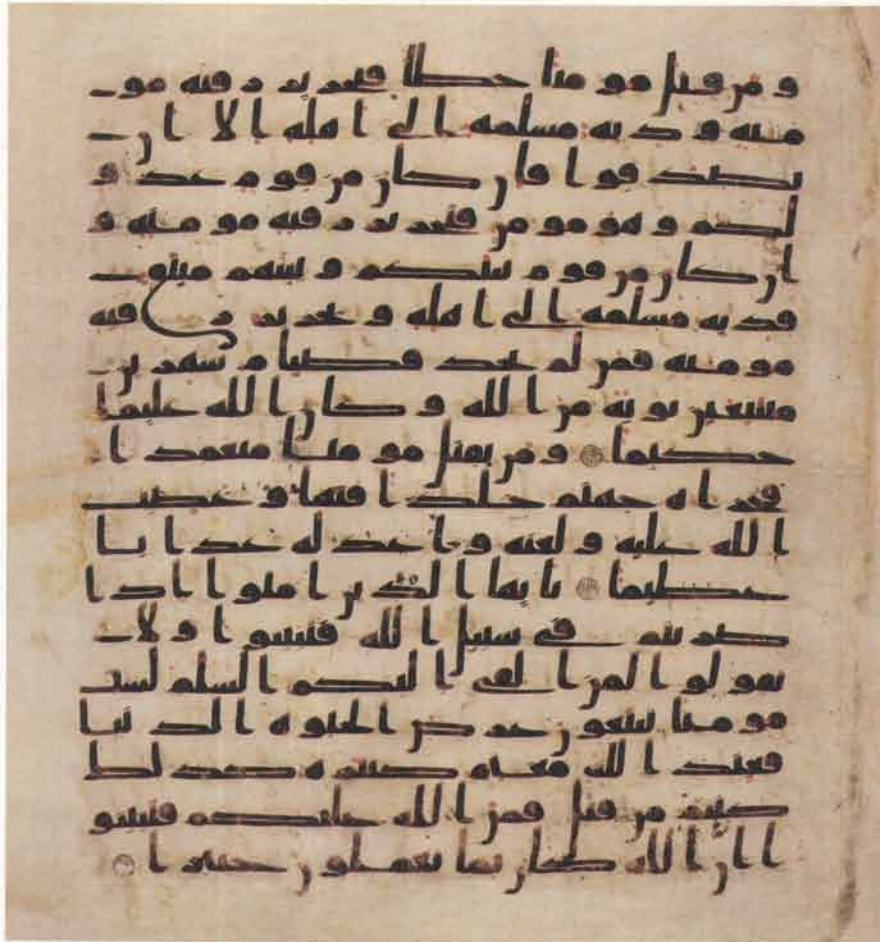 ومن قتل مومنا خطا فتحرير رقبه مو
منه وديه مسلمه الى اهله الا ان
يصدقوا فان كان من قوم عدو
لكم وهو مومن فتحرير رقبه مومنه و
ان كان من قوم بينكم وبينهم ميثق
فديه مسلمه الى اهله وتحرير رقبه
مومنه فمن لم يجد فصيام شهرين
متتبعين توبه من الله وكان الله عليما
حكيما ومن يقتل مومنا متعمدا
فجزاه جهنم خلدا فيها وغضب
الله عليه ولعنه واعد له عذابا
عظيما يايها الذين امنوا اذا
ضربتم في سبيل الله فتبينوا ولا
تقولوا لمن القى اليكم السلم لست
مومنا تبتغون عرض الحيوه الدنيا
فعند الله مغنم كثيره كذلك
كنتم من قبل فمن الله عليكم فتبينو
ا ان الله كان بما تعملون خبيرا